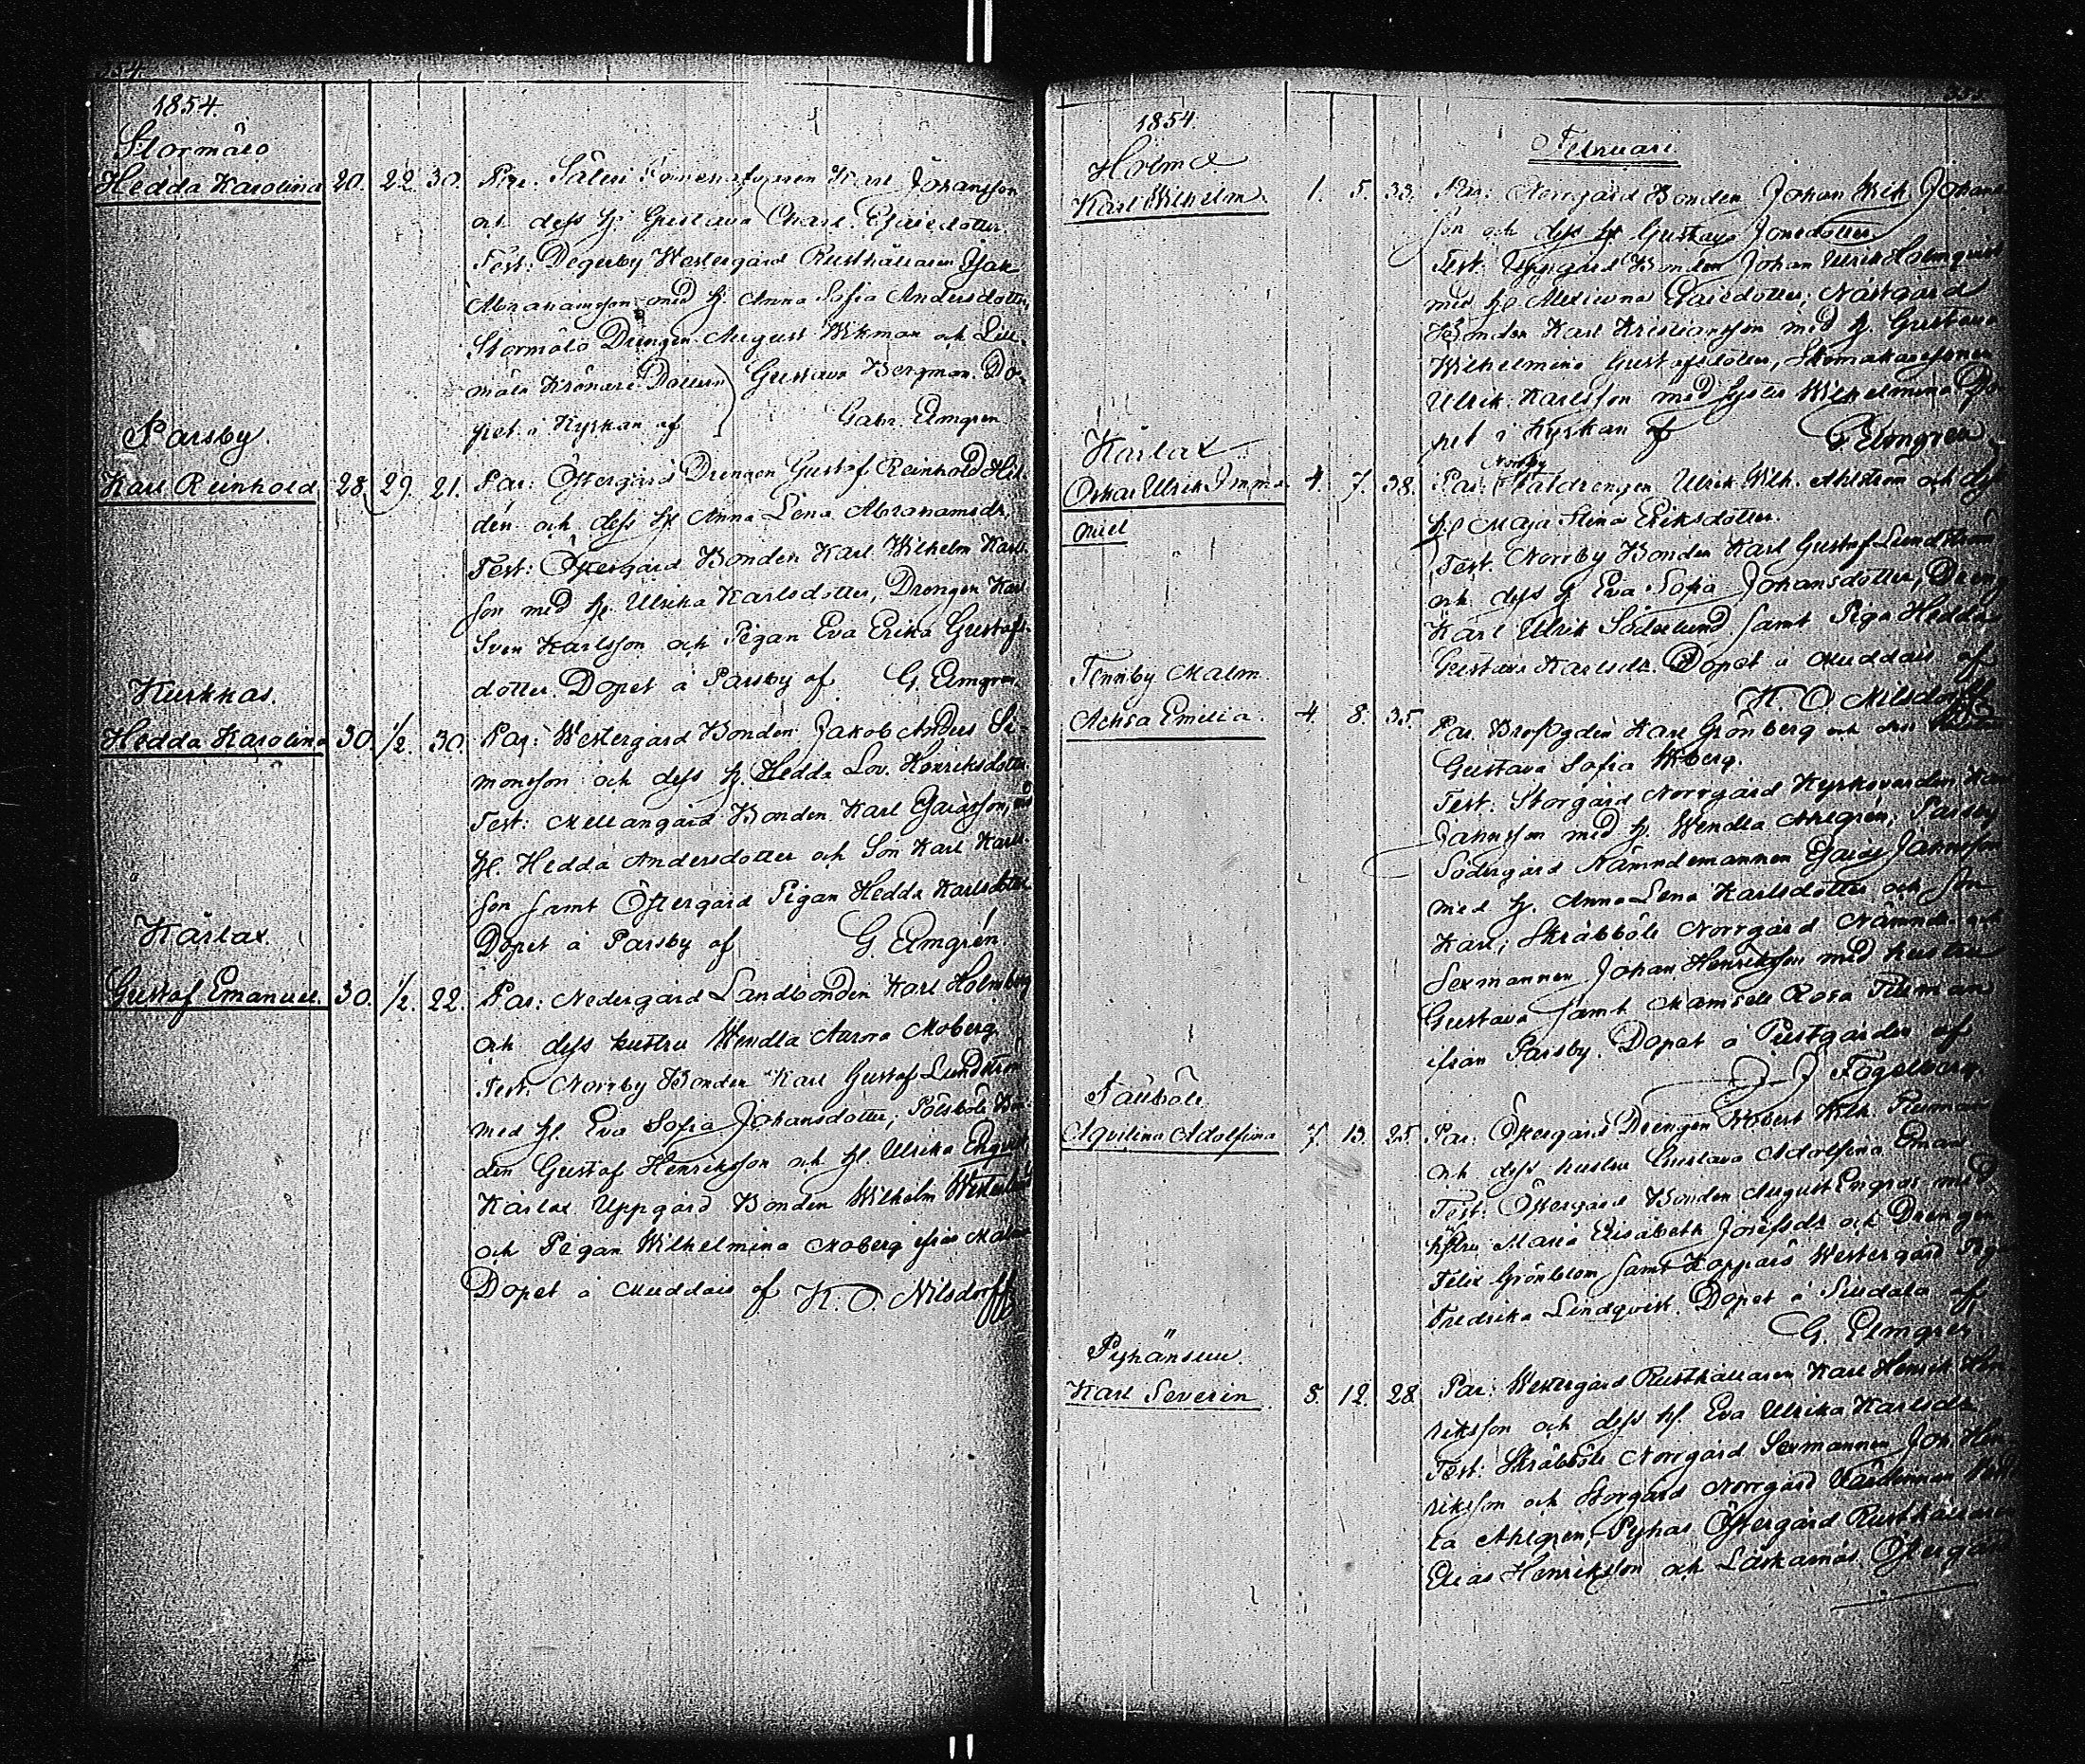 154.
1854.
Stormälö
Hedda Karolina 20. 22. 30. Par. Säteri Karl Johansson
och dess h. Gustava Charl. Esaiedotter.
Test: Degerby Westergård Rusthållaren Isak
Abrahamsson med h. Anna Sofia Andersdotter,
Stormälö Drengen August Wikman och Lill-
mälö Krönare Dottern Gustava Bergman. Dö-
pet i Kyrkan af Gabr. Elmgren
Parsby.
Karl Reinhold 28. 29. 21. Par: Östergård Drengen Gustaf Reinhold Hil-
dén och dess h. Anna Lena Abrahamsdr.
Test: Östergård Bonden Karl Wilhelm Karls-
son med h. Ulrika Karlsdotter, Drengen Karl
Sven Karlsson och Pigan Eva Erika Gustafs-
dotter. Döpet å Parsby af G. Elmgren.
Kurkkas.
Hedda Karolina 30. 1/2. 30. Par: Westergård Bonden Jakob Anders Si-
monsson och dess h. Hedda Lov. Henriksdotter
Test: Mellangård Bonden Karl Esaiasson, med
h. Hedda Andersdotter och Son Karl Karls-
son samt Östergård Pigan Hedda Karlsdotter
Döpet å Parsby af G. Elmgrén
Kärlax.
Gustaf Emanuel 30. 1/2. 22. Par: Nedergård Landbonden Karl Holmberg
och dess hustru Wendla Aurora Moberg.
Test. Norrby Bonden Karl Gustaf Lundström
med h. Eva Sofia Johansdotter, Pålsböle Bon-
den Gustaf Henriksson och h. Ulrika Engvist
Kärlax Uppgård Bonden Wilhelm Westerlund
och Pigan Wilhelmina Moberg ifrån Malm
Döpet å Muddais af K. O. Nilsdorff
1854.
Februari
Holma
Karl Wilhelm. 1. 5. 33. Par: Norrgård Bonden Johan Wilh. Johans-
son och dess h. Gustava Jonsdotter
Test: Uppgård Bonden Johan Ulrik Holmqvist
med h. Alexiuna Esaiedotter, Nästgård
Bonden Karl Kristiansson med h. Gustava
Wilhelmina Gustafsdotter, Skomakaresonen
Ulrik Karlsson med syster Wilhelmina Dö-
pet i Kyrkan af G. Elmgren
Kärlax.
Norrby
Oskar Ulrik Imma- 4. 7. 38. Par: Ulrik Wilh. Ahlström och dess
nuel h. Maja Stina Eriksdotter.
Test. Norrby Bonden Karl Gustaf Lundström
och dess h. Eva Sofia Johansdotter, Dreng
Karl Ulrik Söderlund samt Piga Hedda
Gustava Karlsdr. Döpet å Muddais af
K. O Nilsdorff
Tennby Malm.
Achsa Emilia. 4. 8. 35. Par. Brofogden Karl Grönberg och dess
Gustava Sofia Wiberg.
Test: Storgård Norrgård Kyrkovärden Karl
Jahnsson med h. Wendla Ahlgrén, Parsby
Södergård Nämndemannen Esaias Jahnsson
med h. Anna Lena Karlsdotter och Son
Karl; Skräbböle Norrgård Nämnde- och
Sexmannen Johan Henriksson med hustru
Gustava samt Mamsell Rosa Tileman
ifrån Parsby. Döpet å Prestgården af
J J Fogelberg.
Pättböle
Aqvilina Adolfina 7. 13. 25. Par: Östergård Drengen Robert Wilh. Reiman
och dess hustru Gustava Adolfina Eman
Test: Östergård Bonden August Engros med
hstru Maria Elisabeth Josefsdr och Drengen
Felix Grönblom samt Koppars Westergård Piga
Fredrika Lindqvist. Döpet å Sudala af
G. Elmgren.
Pyhänsuu.
Karl Severin 5. 12. 28. Par: Westergård Rusthållaren Karl Henrik Hen-
riksson och dess h. Eva Ulrika Karlsdr.
Test: Skräbböle Norrgård Sexmannen Joh. Hen-
riksson och Storgård Norrgård Wend-
la Ahlgren, Pyhas Östergård Rusthållaren
Elias Henriksson och Läskarnäs Östergård